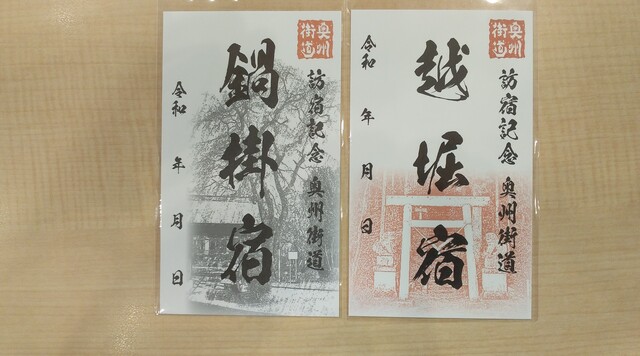 奥州
街道
訪宿記念 奥州街道
鍋掛宿
令和 年 月 日
奥州
街道
訪宿記念 奥州街道
越堀宿
令和 年 月 日